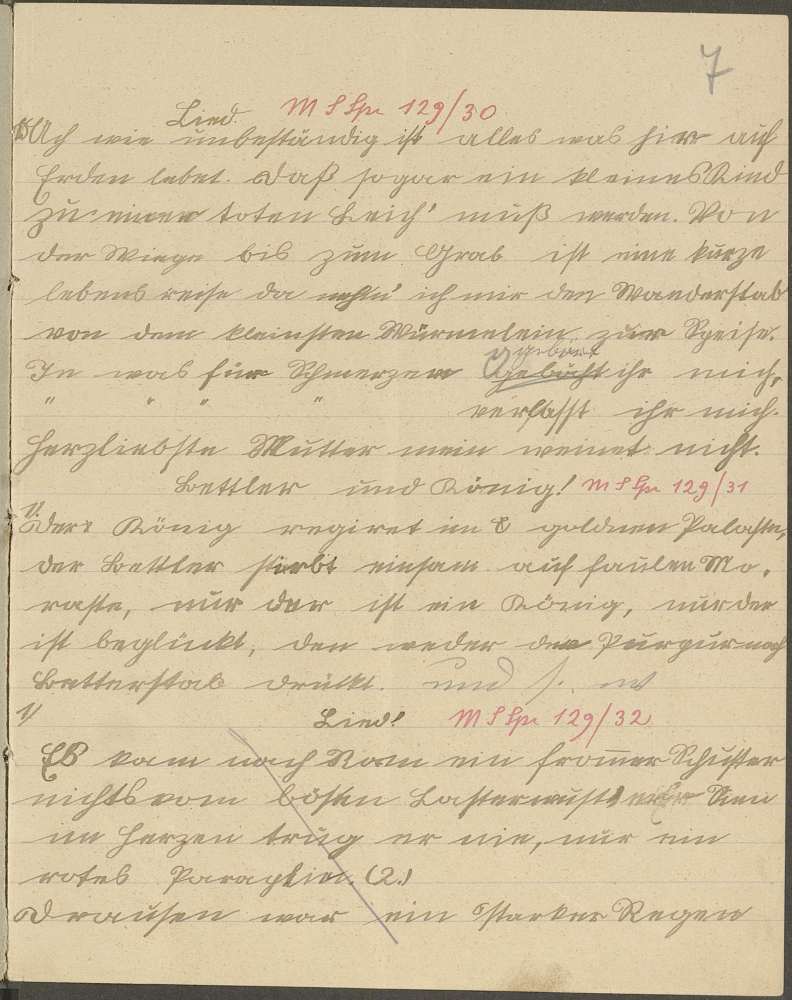 7
Lied. M S Spr 129/30
Ach wie unbeständig ist alles was hier auf
Erden lebet. Daß sogar ein kleines Kind
zu einer toten Leich' muß werden. Von
der Wiege bis zum Grab ist eine kurze
lebens reise da nehm' ich mir den Wanderstab
von dem kleinsten Würmelein zur Speise.
gebart
In was für Schmerzen ihr mich,
" " " " verlasst ihr mich.
Herzliebste Mutter mein weinet nicht.
Bettler und König! M S Spr 129/31
1/
Der König regiret im goldnen Palaste,
der Bettler stirbt einsam auf faulen Mo-
raste, nur der ist ein König, nur der
ist beglückt, den weder der Purpur noch
Bettlerstab drückt. und s. w
1/ Lied! M S Spr 129/32
Es kam nach Rom ein from̅er Schuster
nichts vom bösen Laster wust er Sein
im Herzen trug er nie, nur ein
rotes Paraplie. (2.)
Drausen war ein starker Regen